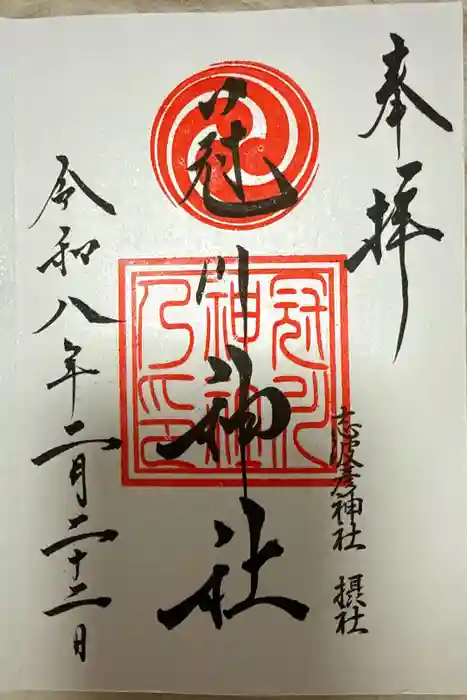 奉拝
志波彦神社　摂社
冠川神社
冠川
神社
乃印
令和八年二月二十二日